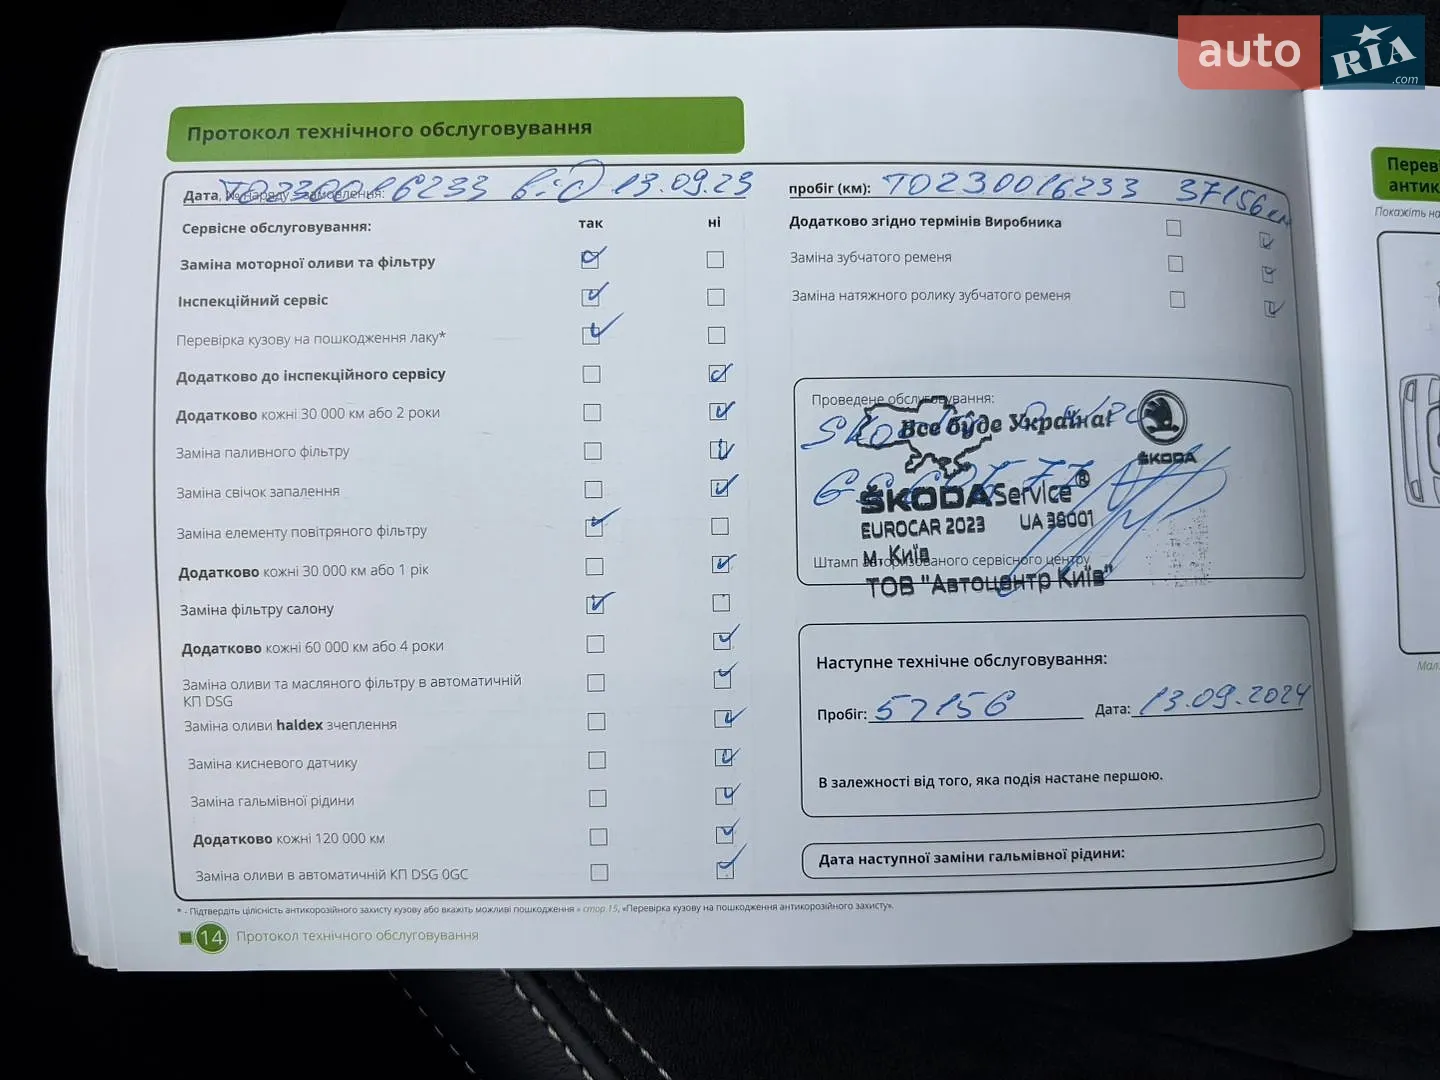 auto RIA.com
Протокол технічного обслуговування
Дата, № наряду-замовлення: ТО230016233 від 13.09.23
пробіг (км): ТО230016233 37156 км
Сервісне обслуговування: так ні
Заміна моторної оливи та фільтру
Інспекційний сервіс
Перевірка кузову на пошкодження лаку*
Додатково до інспекційного сервісу
Додатково кожні 30 000 км або 2 роки
Заміна паливного фільтру
Заміна свічок запалення
Заміна елементу повітряного фільтру
Додатково кожні 30 000 км або 1 рік
Заміна фільтру салону
Додатково кожні 60 000 км або 4 роки
Заміна оливи та масляного фільтру в автоматичній
КП DSG
Заміна оливи haldex зчеплення
Заміна кисневого датчику
Заміна гальмівної рідини
Додатково кожні 120 000 км
Заміна оливи в автоматичній КП DSG 0GC
Додатково згідно термінів Виробника
Заміна зубчатого ременя
Заміна натяжного ролику зубчатого ременя
Проведене обслуговування:
Все буде Україна!
ŠKODA
ŠKODA Service®
EUROCAR 2023 UA 38001
м. Київ
Штамп авторизованого сервісного центру
ТОВ "Автоцентр Київ"
Наступне технічне обслуговування:
Пробіг: 52156 Дата: 13.09.2024
В залежності від того, яка подія настане першою.
Дата наступної заміни гальмівної рідини:
* - Підтвердіть цілісність антикорозійного захисту кузову або вкажіть можливі пошкодження » стор 15, «Перевірка кузову на пошкодження антикорозійного захисту».
14 Протокол технічного обслуговування
Перев
антик
Покажіть на
Мал